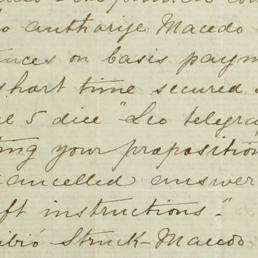 to authorize Macedo
on basis paym
short time secured
5 dice "Leo telegra
ting your proposition
cancelled answer
ft instructions."
ibió Struck-Macedo